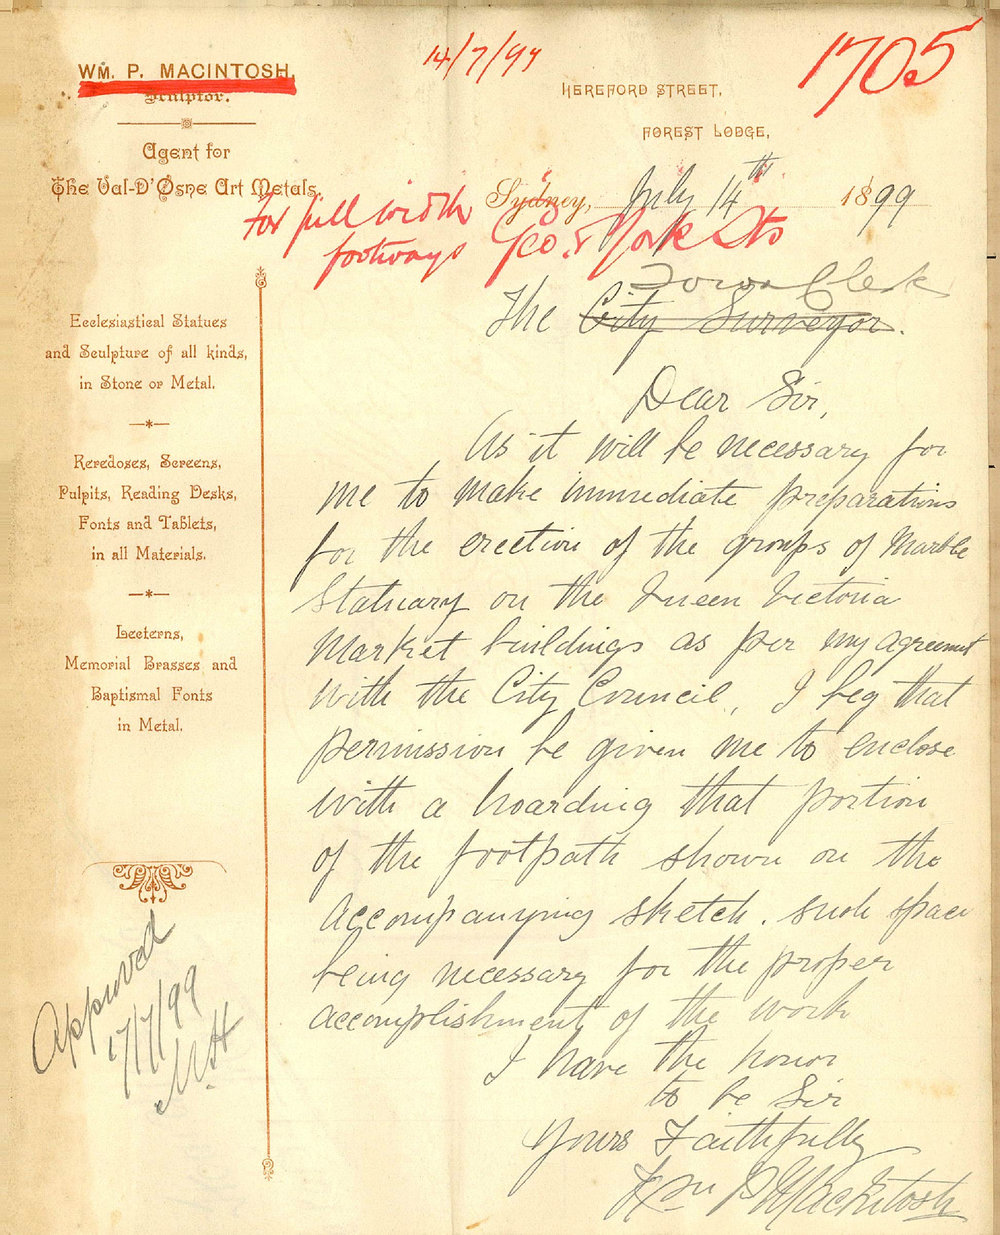 14/7/99
1705
WM. P. MACINTOSH,
Sculptor.
Agent for
The Val-D'Osne Art Metals.
HEREFORD STREET,
FOREST LODGE,
Sydney, July 14th 1899
For full width
footways Geo. & York Sts
Town Clerk
The City Surveyor.
Dear Sir,
As it will be necessary for
me to make immediate preparations
for the erection of the groups of Marble
Statuary on the Queen Victoria
Market buildings as per my agreement
with the City Council, I beg that
permission be given me to enclose
with a hoarding that portion
of the footpath shown on the
accompanying sketch. such space
being necessary for the proper
accomplishment of the work
I have the honor
to be Sir
Yours Faithfully
Wm P Macintosh
Ecclesiastical Statues
and Sculpture of all kinds,
in Stone or Metal.
—*—
Reredoses, Screens,
Pulpits, Reading Desks,
Fonts and Tablets,
in all Materials.
—*—
Lecterns,
Memorial Brasses and
Baptismal Fonts
in Metal.
Approved
17/7/99